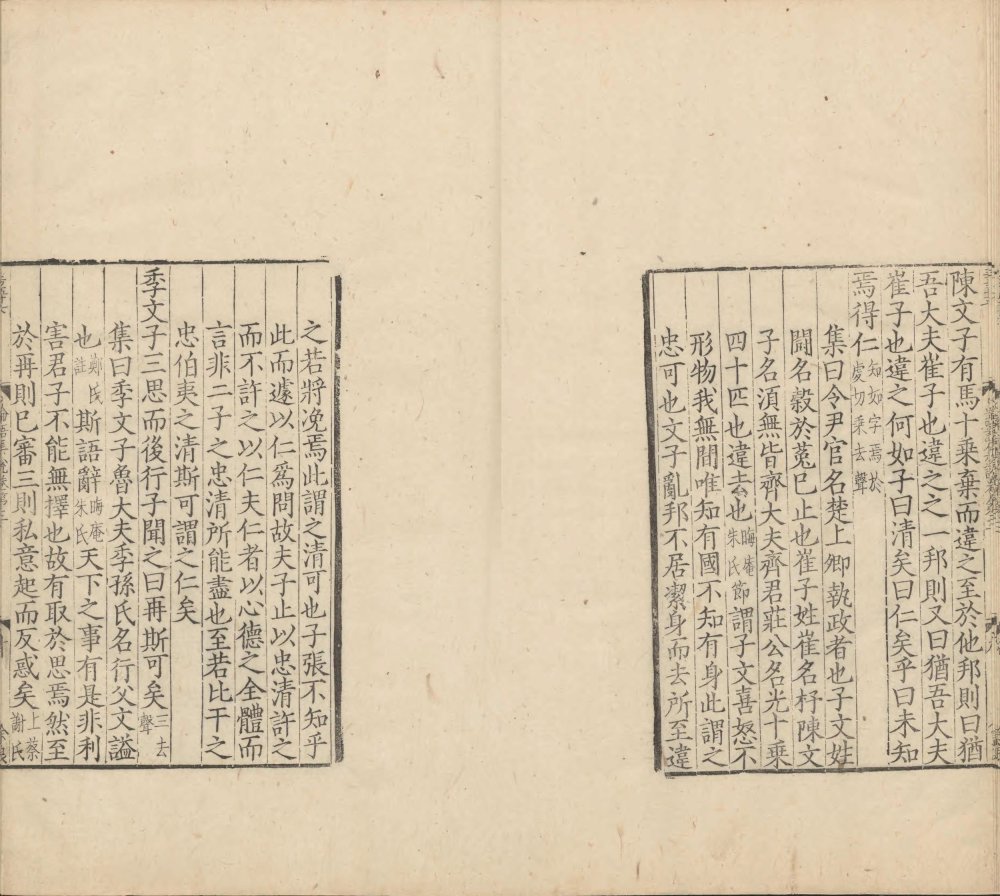 陳文子有馬十乘棄而違之至於他邦則曰猶
吾大夫崔子也違之之一邦則又曰猶吾大夫
崔子也違之何如子曰清矣曰仁矣乎曰未知
焉得仁知如字焉於虔切乘去聲
集曰令尹官名楚上卿執政者也子文姓
鬪名穀於菟已止也崔子姓崔名杼陳文
子名須無皆齊大夫齊君莊公名光十乘
四十匹也違去也晦庵朱氏節謂子文喜怒不
形物我無間唯知有國不知有身此謂之
忠可也文子亂邦不居潔身而去所至違
之若將浼焉此謂之清可也子張不知乎
此而遽以仁爲問故夫子止以忠清許之
而不許之以仁夫仁者以心德之全體而
言非二子之忠清所能盡也至若比干之
忠伯夷之清斯可謂之仁矣
季文子三思而後行子聞之曰再斯可矣三去聲
集曰季文子魯大夫季孫氏名行父文謚
也鄭氏註斯語辭晦庵朱氏天下之事有是非利
害君子不能無擇也故有取於思焉然至
於再則已審三則私意起而反惑矣上蔡謝氏